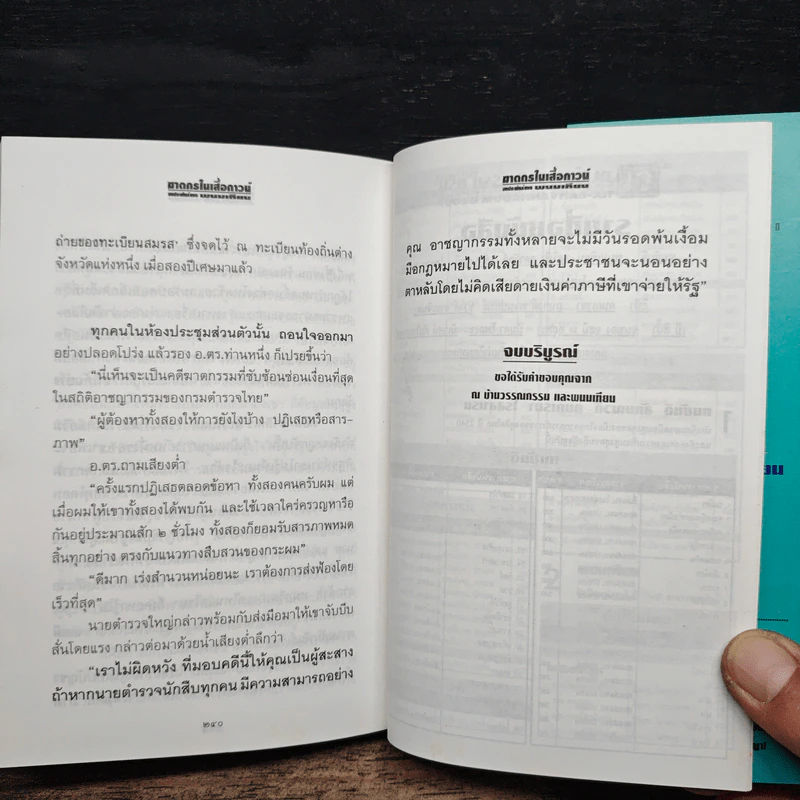 ฆาตกรในเสื้อกาวน์
ถ่ายของทะเบียนสมรส' ซึ่งจดไว้ ณ ทะเบียนท้องถิ่นต่าง
จังหวัดแห่งหนึ่ง เมื่อสองปีเศษมาแล้ว
ทุกคนในห้องประชุมส่วนตัวนั้น ถอนใจออกมา
อย่างปลอดโปร่ง แล้วรอง อ.ตร.ท่านหนึ่ง ก็เปรยขึ้นว่า
“นี่เห็นจะเป็นคดีฆาตกรรมที่ซับซ้อนซ่อนเงื่อนที่สุด
ในสถิติอาชญากรรมของกรมตำรวจไทย”
“ผู้ต้องหาทั้งสองให้การยังไงบ้าง ปฏิเสธหรือสาร-
ภาพ”
อ.ตร.ถามเสียงต่ำ
“ครั้งแรกปฏิเสธตลอดข้อหา ทั้งสองคนครับผม แต่
เมื่อผมให้เขาทั้งสองได้พบกัน และใช้เวลาใคร่ครวญหารือ
กันอยู่ประมาณสัก ๒ ชั่วโมง ทั้งสองก็ยอมรับสารภาพหมด
สิ้นทุกอย่าง ตรงกับแนวทางสืบสวนของกระผม”
“ดีมาก เร่งสำนวนหน่อยนะ เราต้องการส่งฟ้องโดย
เร็วที่สุด”
นายตำรวจใหญ่กล่าวพร้อมกับส่งมือมาให้เขาจับบีบ
สั่นโดยแรง กล่าวต่อมาด้วยน้ำเสียงต่ำลึกว่า
“เราไม่ผิดหวัง ที่มอบคดีนี้ให้คุณเป็นผู้สะสาง
ถ้าหากนายตำรวจนักสืบทุกคน มีความสามารถอย่าง
๒๔๐
ฆาตกรในเสื้อกาวน์
คุณ อาชญากรรมทั้งหลายจะไม่มีวันรอดพ้นเงื้อม
มือกฎหมายไปได้เลย และประชาชนจะนอนอย่าง
ตาหลับโดยไม่คิดเสียดายเงินค่าภาษีที่เขาจ่ายให้รัฐ”
จบบริบูรณ์
ขอได้รับคำขอบคุณจาก
ณ บ้านวรรณกรรม และพนมเทียน